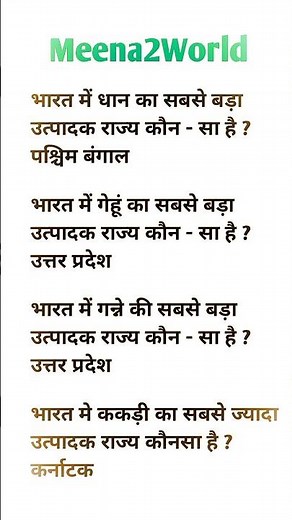 Meena2World
भारत में धान का सबसे बड़ा
उत्पादक राज्य कौन - सा है ?
पश्चिम बंगाल
भारत में गेहूं का सबसे बड़ा
उत्पादक राज्य कौन - सा है ?
उत्तर प्रदेश
भारत में गन्ने की सबसे बड़ा
उत्पादक राज्य कौन - सा है ?
उत्तर प्रदेश
भारत मे ककड़ी का सबसे ज्यादा
उत्पादक राज्य कौनसा है ?
कर्नाटक